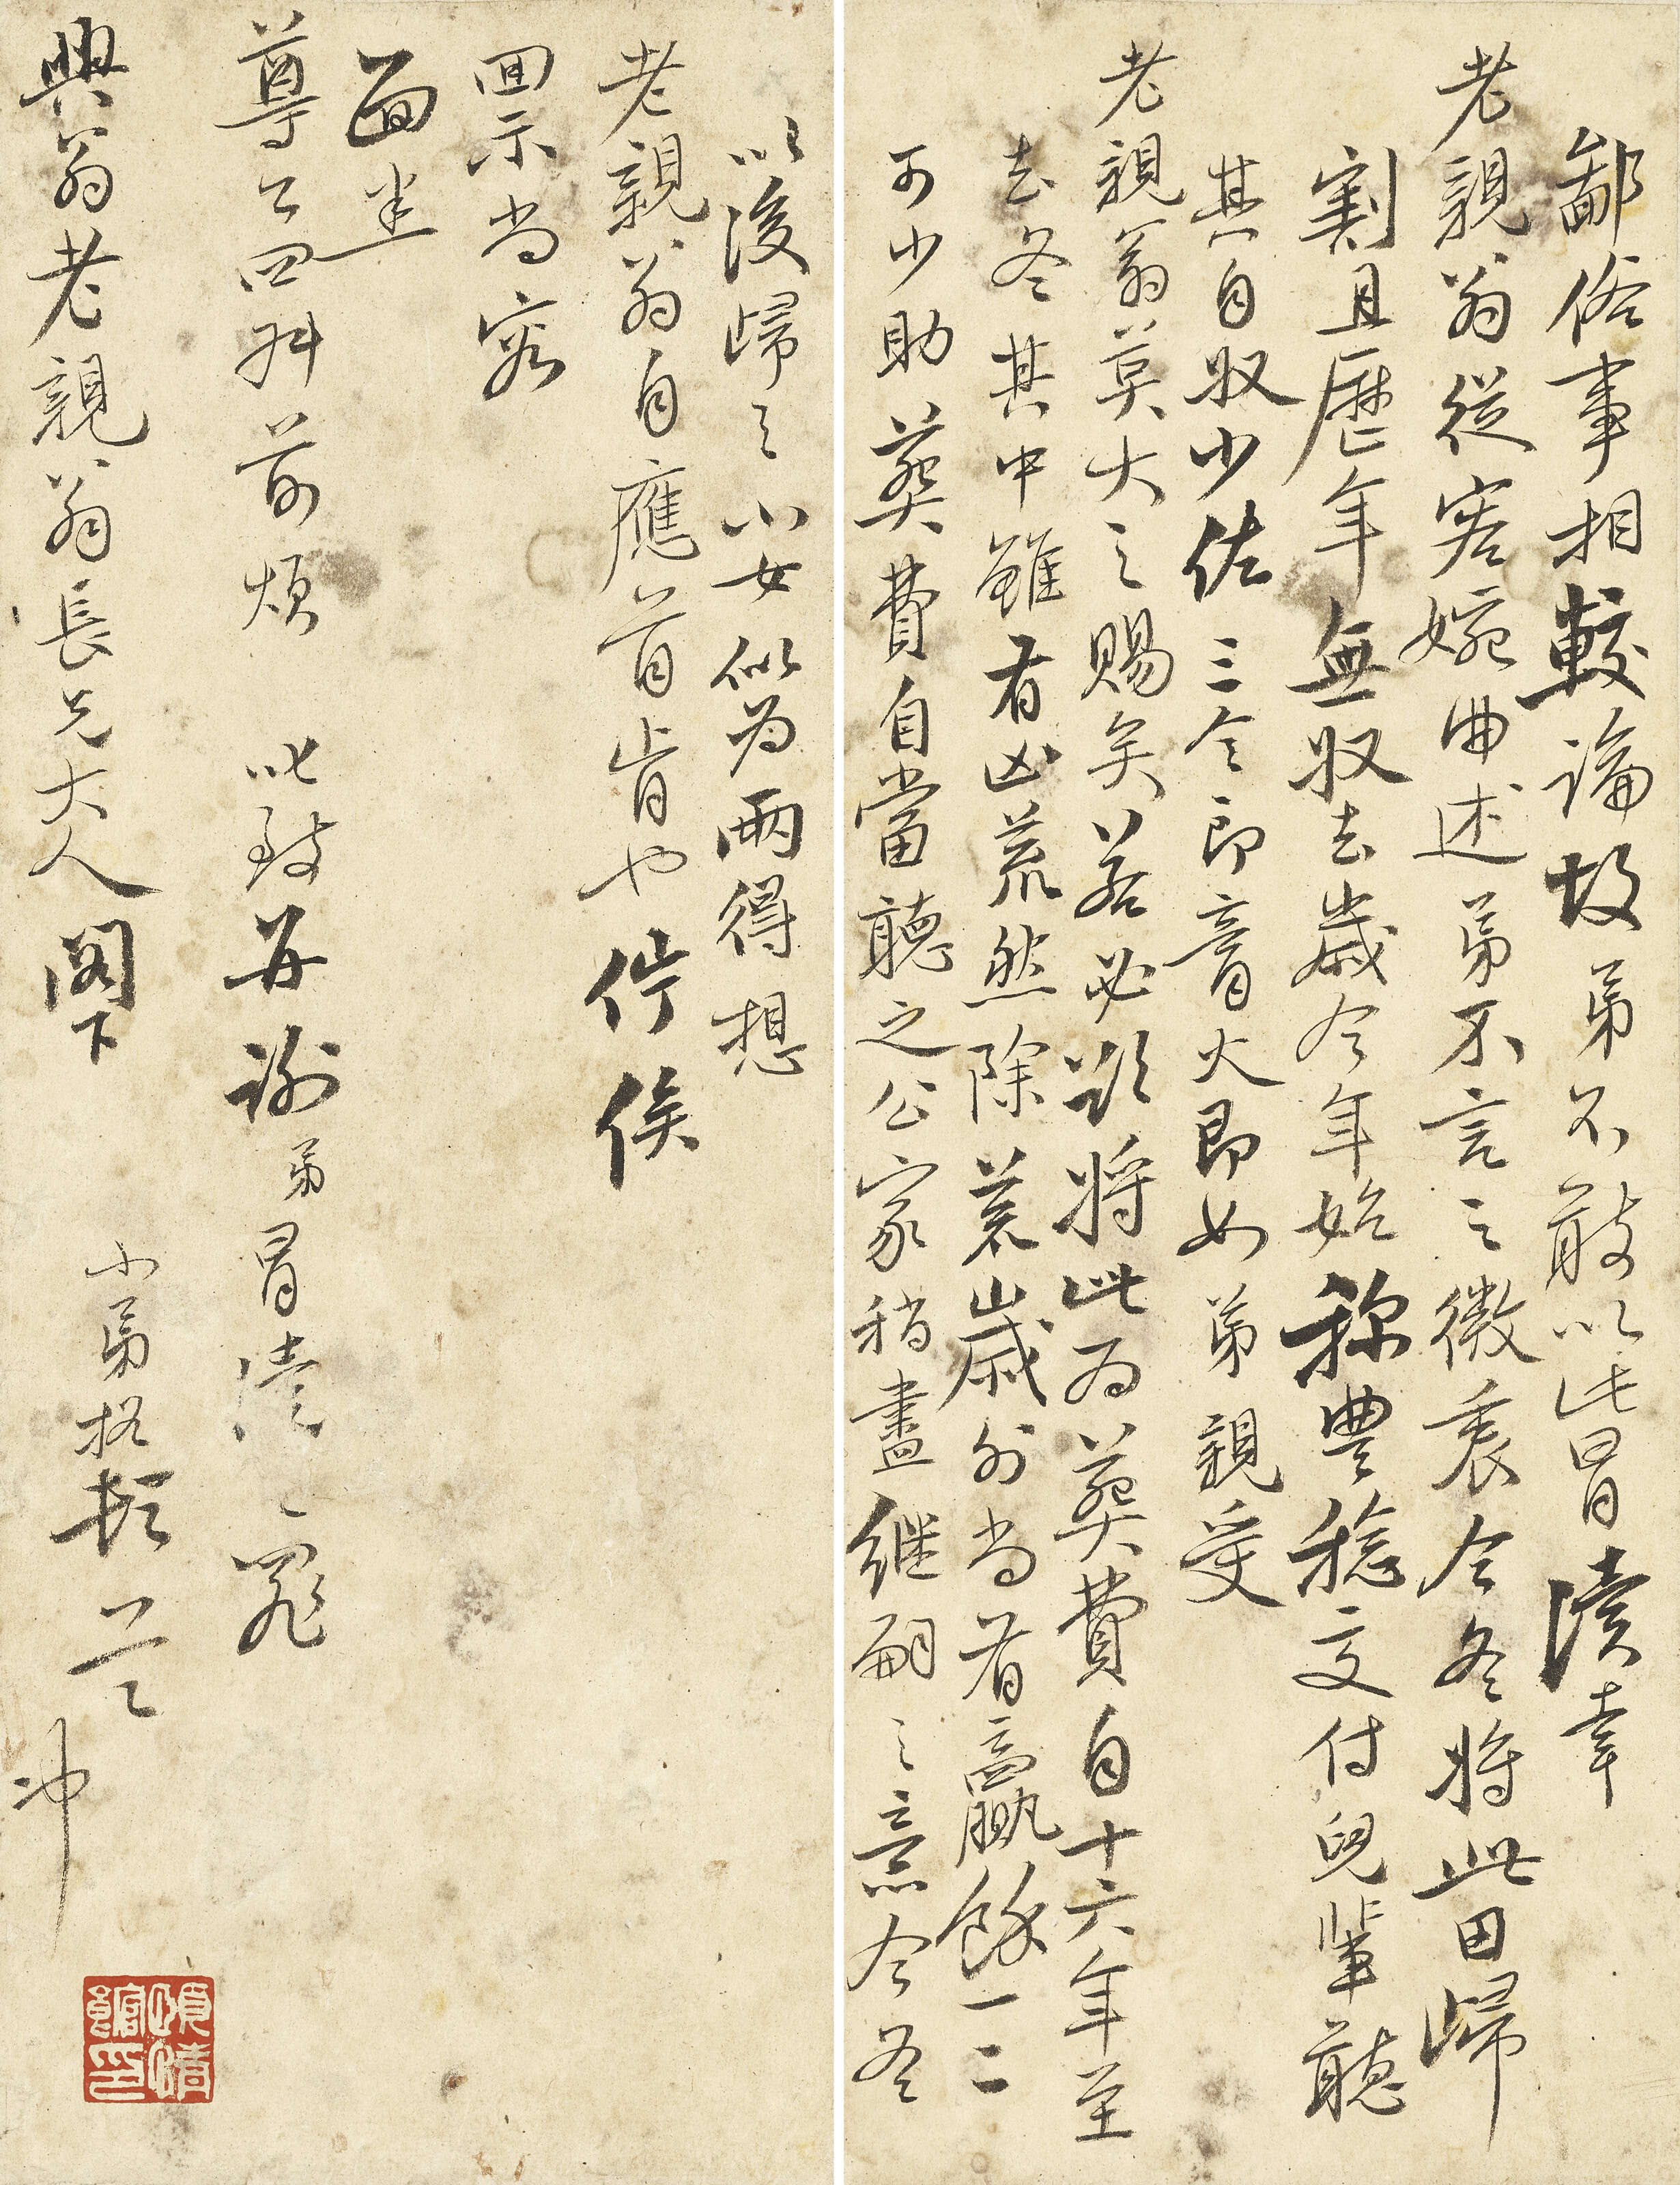 鄙俗事相較論故弟不敢以此冒瀆幸
老親翁從容婉曲述弟不言之微衷今冬將此田歸
割且歷年無收去歲今年始稱豐稔交付兒輩聽
其自收少佐三令郎膏火即如弟親受
老親翁莫大之賜矣若必欲將此為葬費自十六年至
去冬其中雖有凶荒然除荒歲外尚有贏餘一二
可少助葬費自當聽之公家稍盡繼嗣之意今冬
以後歸之小女似為兩得想
老親翁自應首肯也佇俟
回示尚容
面悉
尊公四舅前煩 叱致再謝弟冒瀆之罪
與翁老親翁長兄大人閣下
小弟格頓首
冲
項情